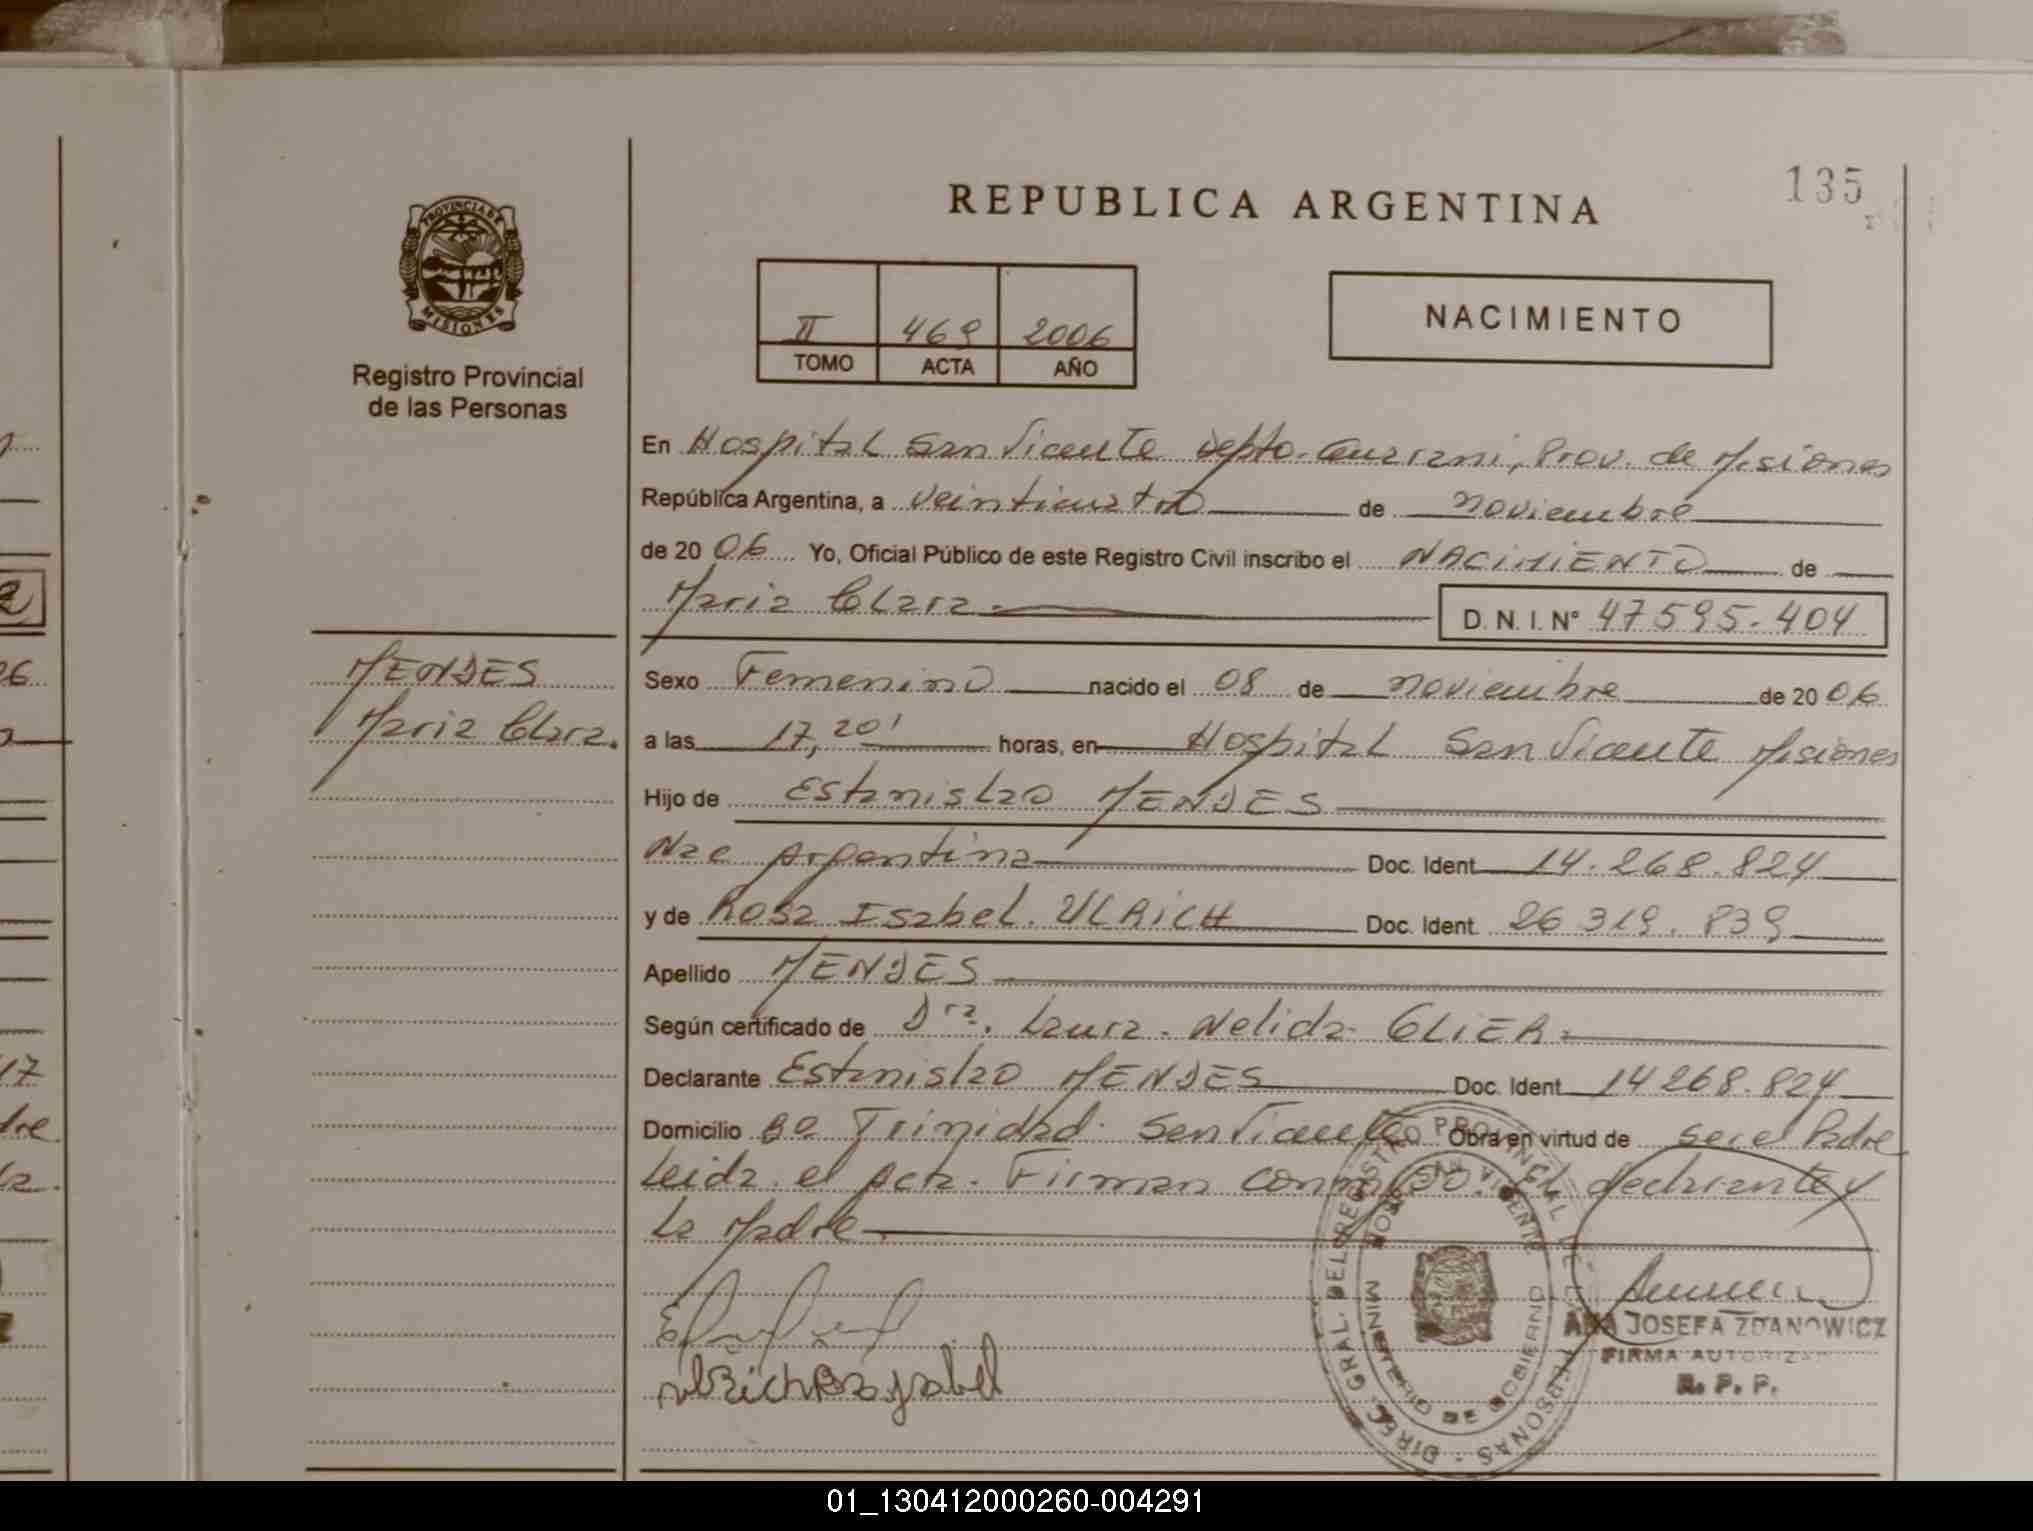 135
REPUBLICA ARGENTINA
PROVINCIA DE
MISIONES
Registro Provincial
de las Personas
II 469 2006
TOMO ACTA AÑO
NACIMIENTO
En Hospital San Vicente Depto. Guarani, Prov. de Misiones
República Argentina, a veinticuatro de noviembre
de 2006 Yo, Oficial Público de este Registro Civil inscribo el NACIMIENTO de
Maria Clara D. N. I. N° 47595.404
MENDES
Maria Clara.
Sexo Femenino nacido el 08 de noviembre de 2006
a las 17,20' horas, en Hospital San Vicente Misiones
Hijo de Estanislao MENDES
Nac Argentina Doc. Ident 14.268.824
y de Rosa Isabel ULRICH Doc. Ident. 26 319.839
Apellido MENDES
Según certificado de Dra. Laura Nelida GLIER
Declarante Estanislao MENDES Doc. Ident 14268.824
Domicilio Bo Trinidad San Vicente Obra en virtud de ser el Padre
Leida el Acta. Firman conmigo El declarante y
La Madre
Ulrich Rosa Isabel
DIREC. GRAL. DEL REGISTRO PROVINCIAL DE LAS PERSONAS
HOSP. SAN VICENTE
MINIST. DE GOBIERNO
ANA JOSEFA ZDANOWICZ
FIRMA AUTORIZADA
R. P. P.
26
17
dre
01_130412000260-004291